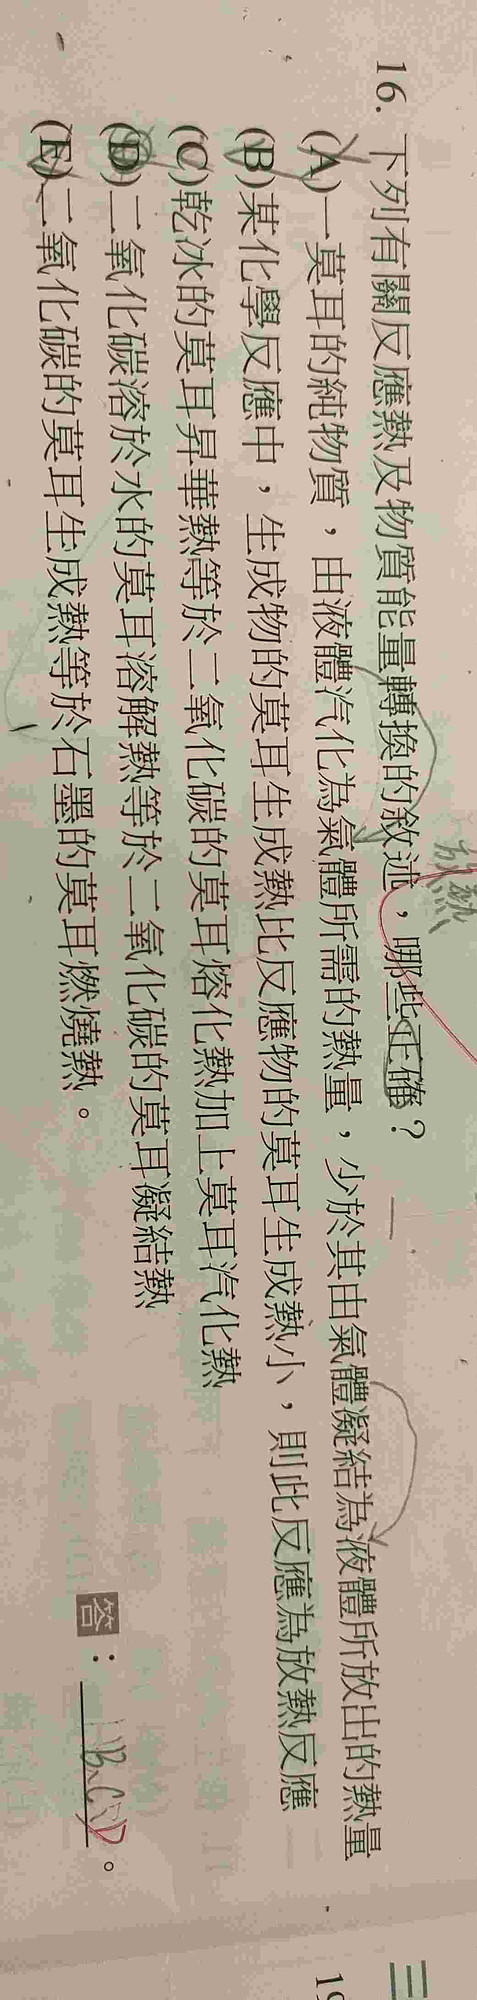 16. 下列有關反應熱及物質能量轉換的敘述，哪些正確？
放熱
(A)一莫耳的純物質，由液體汽化為氣體所需的熱量，少於其由氣體凝結為液體所放出的熱量
(B)某化學反應中，生成物的莫耳生成熱比反應物的莫耳生成熱小，則此反應為放熱反應
(C)乾冰的莫耳昇華熱等於二氧化碳的莫耳熔化熱加上莫耳汽化熱
(D)二氧化碳溶於水的莫耳溶解熱等於二氧化碳的莫耳凝結熱
(E)二氧化碳的莫耳生成熱等於石墨的莫耳燃燒熱。
答：B、C 。
三